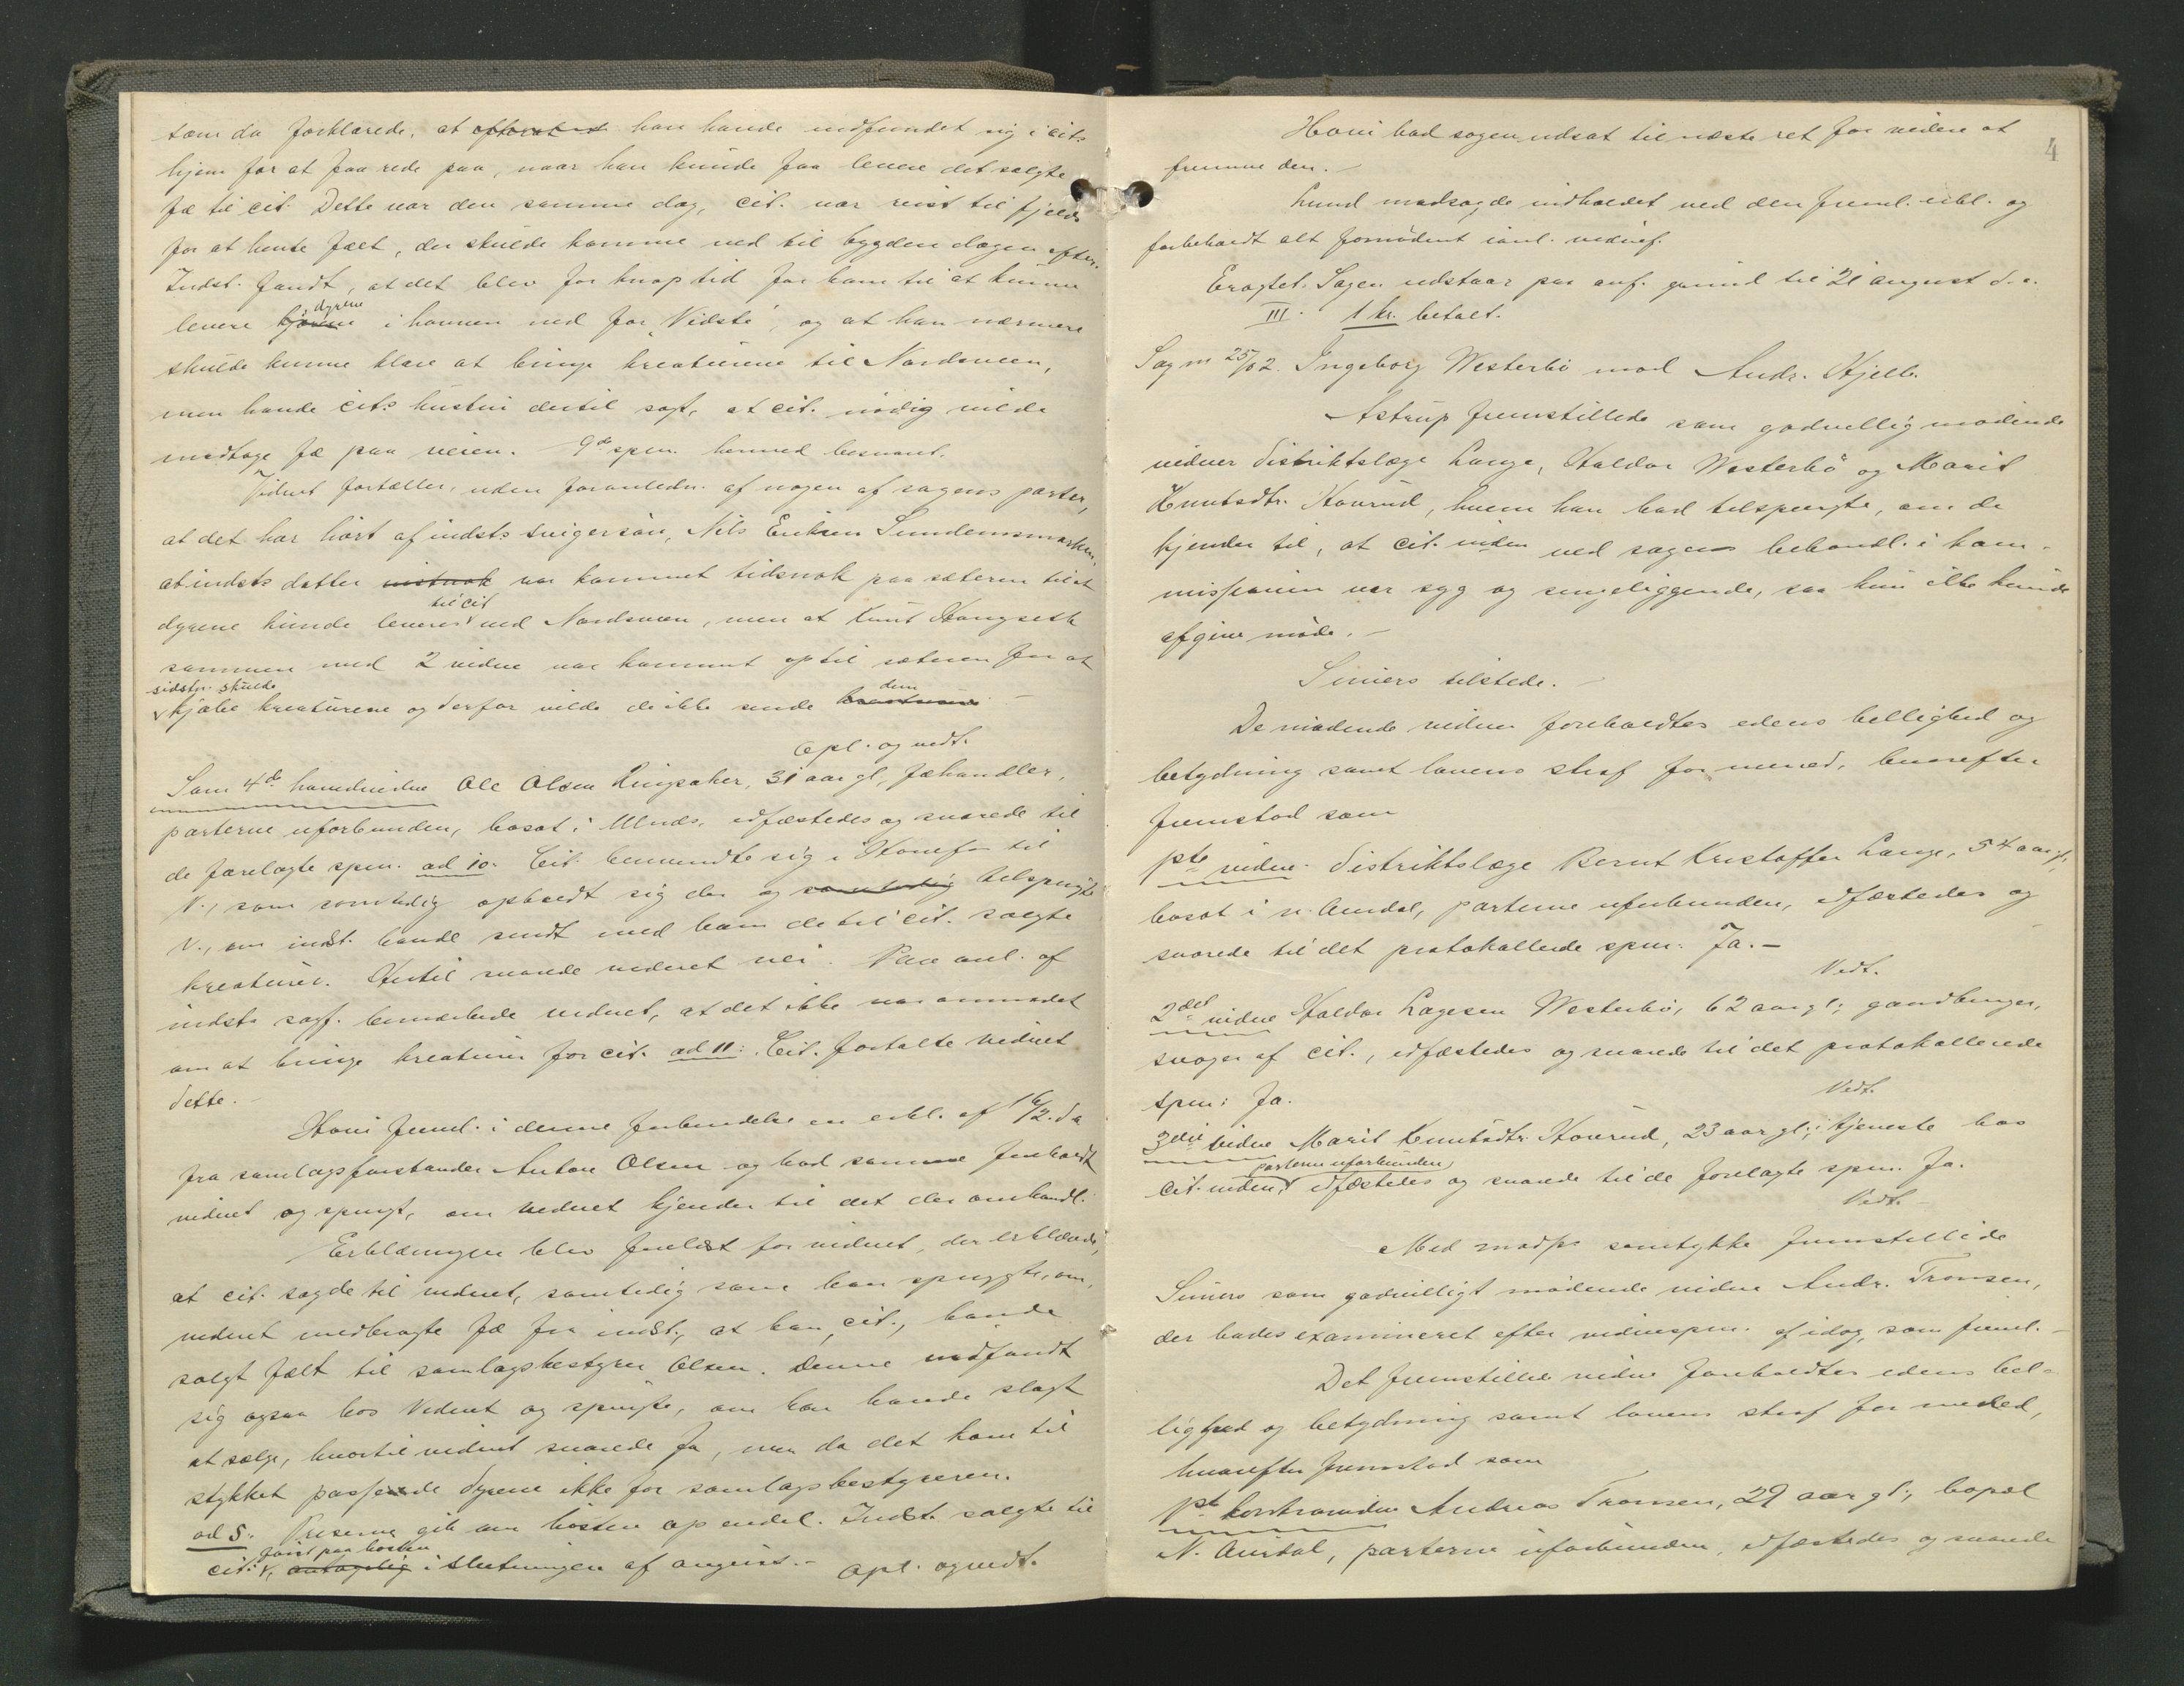 som da forklarede, at han havde indfundet sig i cit:s
hjem for at faa rede paa, naar han kunde faa levere det solgte
fæ til cit. Dette var den samme dag, cit. var reist til fjelds
for at hente fæet, der skulde komme ned til bygden dagen efter.
Indst. fandt, at det blev for knap tid for ham til at kunne
levere dyrene i havnen ned for Vidste, og at han nærmere
skulde kunne klare at bringe kreaturene til Nordsveen,
men havde cit:s hustru dertil sagt, at cit. nødig vilde
modtage fæ paa veien. 9de spm. hermed besvaret.
Vidnet fortæller, uden foranledn. af nogen af sagens parter,
at det har hørt af indst:s svigersøn, Nils Eriksen
at indst:s datter vistnok var kommet tidsnok paa sæteren til at
dyrene kunde leveres til cit ved Nordsveen, men at Knut
sammen med 2 vidner var kommet op til sæteren for at
sidstn. skulde
kjøbe kreaturene og derfor vilde de ikke sende dem
Opl. og vedt.
Som 4de hovedvidne Ole Olsen Ringsaker, 31 aar gl, fæhandler,
parterne uforbunden, bosat i Ulnes, edfæstedes og svarede til
de forelagte spm. ad 10. Cit. henvendte sig i Hønefos til
V., som samtidig opholdt sig der og samtidig tilspurgte
V., om indst. havde sendt med ham de til cit. solgte
kreaturer. Hertil svarede vidnet nei. Paa anl. af
indst:s sagf. bemærkede vidnet, at det ikke var anmodet
om at bringe kreaturer for cit. ad 11: Cit. fortalte vidnet
dette.
Hovi freml. i denne forbindelse en erkl. af 16/2. d a
fra samlagsforstander Anton Olsen og bad samme foreholdt
vidnet og spurgt, om vidnet kjender til det der omhandl.
Erklæringen blev forelæst for vidnet, der erklærede,
at cit. sagde til vidnet, samtidig som han spurgte, om
vidnet medbragte fæ fra indst., at han, cit., havde
solgt fæet til samlagsbestyrer Olsen. Denne indfandt
sig ogsaa hos vidnet og spurgte, om han havde slagt
at sælge, hvortil vidnet svarede ja, men da det kom til
stykket passede dyrene ikke for samlagsbestyreren.
ad 5. Priserne gik om høsten op endel. Indst. solgte til
først paa høsten
cit: v, antagelig i slutningen af august. – Opl. og vedt.
4
Hovi bad sagen udsat til næste ret for videre at
fremme den. –
Lund modsagde indholdet ved den freml. erkl. og
forbeholdt alt fornødent ianl. vedrørf.
Eragtet. Sagen udstaar paa anf. grund til 21 august d. a.
III. 1 kr. betalt.
Sag nr 25/02. Ingeborg Westerbø mod Andr. Hjelle.
Astrup fremstillede som godvillig mødende
vidner distriktslæge Lange, Haldor Westerbø og Marit
Knutsdtr. Hovrud, hvem han bad tilspurgte, om de
kjender til, at cit.inden ved sagens behandl. i kom-
missionen var syg og sengeliggende, saa hun ikke kunde
afgive møde. –
Simers tilstede. –
De mødende vidner foreholdtes edens hellighed og
betydning samt lovens straf for mened, hvorefter
fremstod som
1ste vidne. Distriktslæge Bernt Kristoffer Lange, 54 aar gl,
bosat i n. Aurdal, parterne uforbunden, edfæstedes og
svarede til det protokollerede spm: Ja. –
Vedt.
2det vidne Haldor Lagesen Westerbø, 62 aar gl; gaardbruger,
svoger af cit., edfæstedes og svarede til det protokollerede
spm: Ja.
Vedt.
3die vidne Marit Knutsdtr. Hovrud, 23 aar gl; i tjeneste hos
parterne uforbunden
cit.inden, edfæstedes og svarede til de forelagte spm. Ja.
Vedt. –
Med modp:s samtykke fremstillede
Simers som godvilligt mødende vidne Andr. Tronsen,
der bades examineret efter vidnespm. af idag, som freml. –
Det fremstillede vidne foreholdtes edens hel-
lighed og betydning samt lovens straf for mened,
hvorefter fremstod som
1ste kontravidne Andreas Tronsen, 29 aar gl; bopæl
N. Aurdal, parterne uforbunden, edfæstedes og svarede